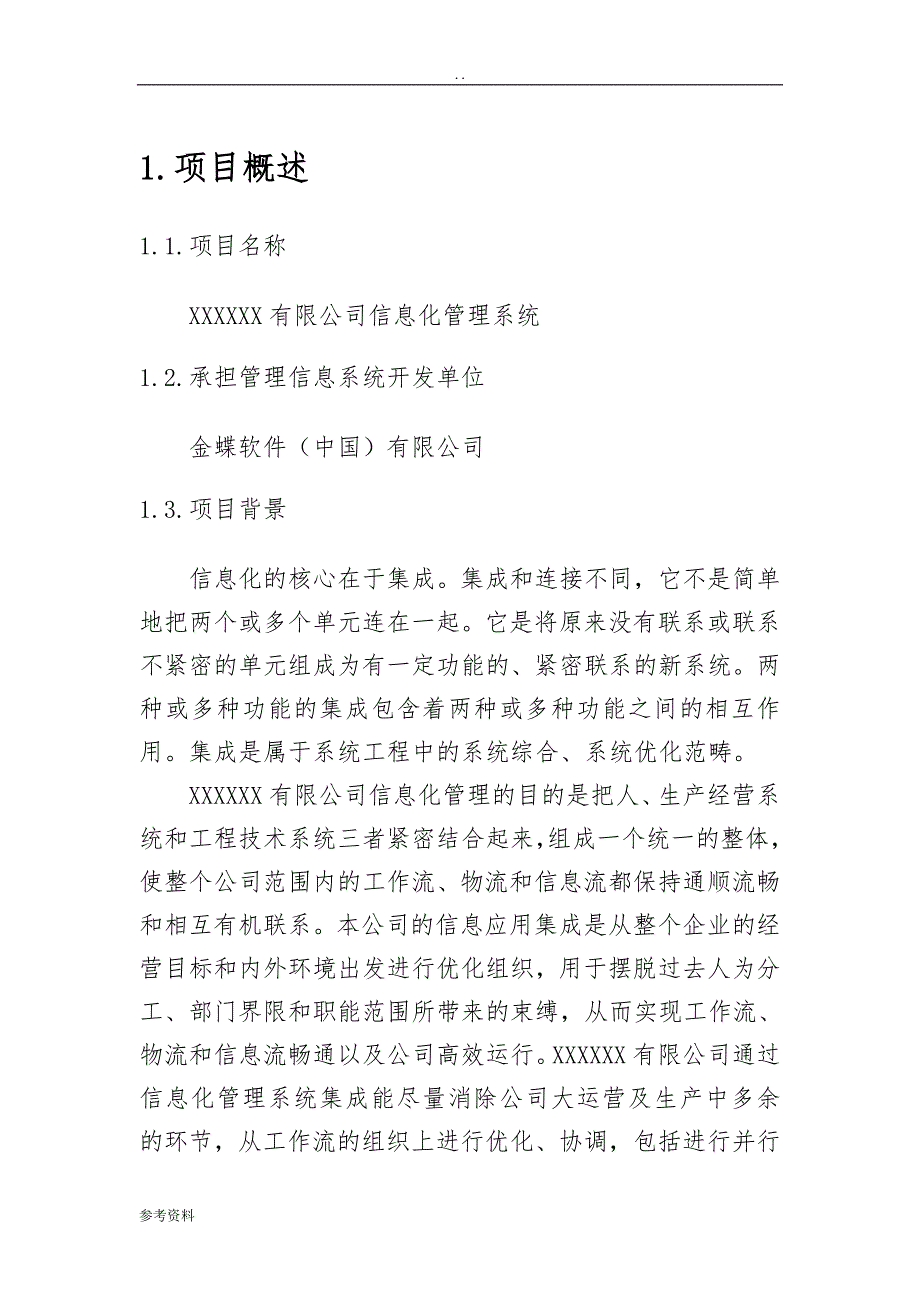 ..
1.项目概述
1.1.项目名称
XXXXXX 有限公司信息化管理系统
1.2.承担管理信息系统开发单位
金蝶软件（中国）有限公司
1.3.项目背景
信息化的核心在于集成。集成和连接不同，它不是简单
地把两个或多个单元连在一起。它是将原来没有联系或联系
不紧密的单元组成为有一定功能的、紧密联系的新系统。两
种或多种功能的集成包含着两种或多种功能之间的相互作
用。集成是属于系统工程中的系统综合、系统优化范畴。
XXXXXX 有限公司信息化管理的目的是把人、生产经营系
统和工程技术系统三者紧密结合起来，组成一个统一的整体，
使整个公司范围内的工作流、物流和信息流都保持通顺流畅
和相互有机联系。本公司的信息应用集成是从整个企业的经
营目标和内外环境出发进行优化组织，用于摆脱过去人为分
工、部门界限和职能范围所带来的束缚，从而实现工作流、
物流和信息流畅通以及公司高效运行。XXXXXX 有限公司通过
信息化管理系统集成能尽量消除公司大运营及生产中多余
的环节，从工作流的组织上进行优化、协调，包括进行并行
参考资料